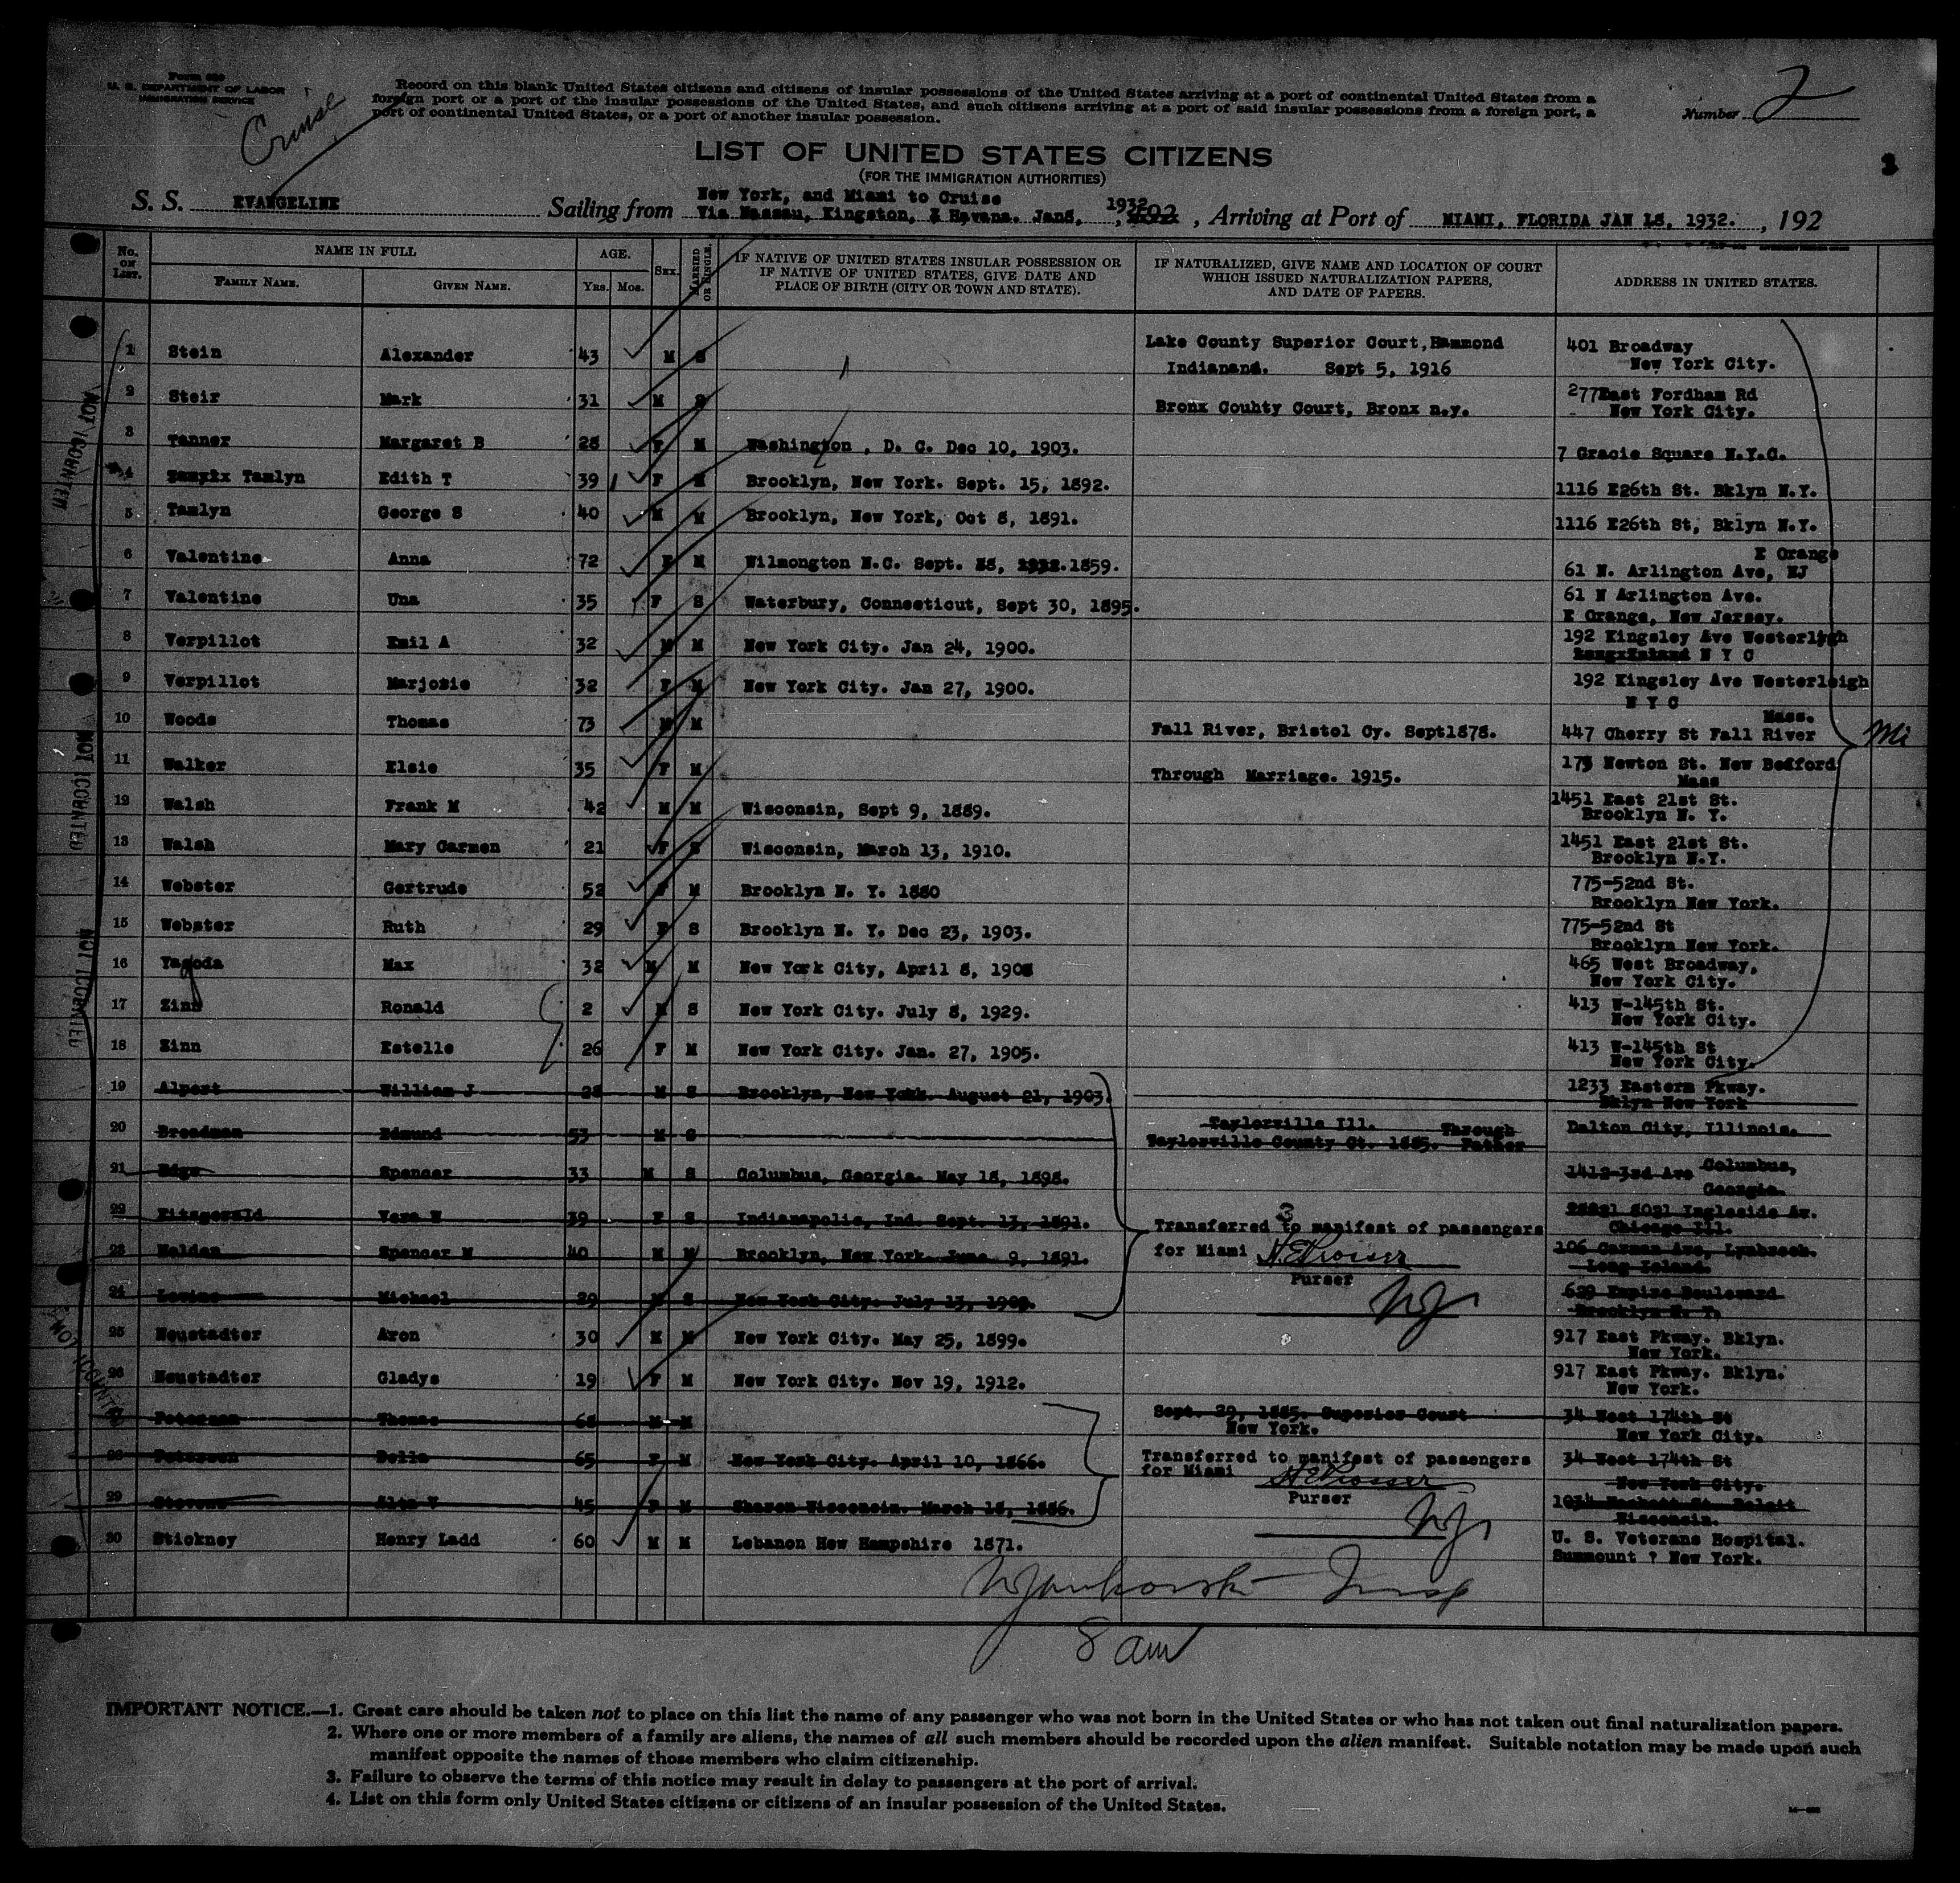 Form 630
U. S. DEPARTMENT OF LABOR
IMMIGRATION SERVICE
Cruise
Record on this blank United States citizens and citizens of insular possessions of the United States arriving at a port of continental United States from a
foreign port or a port of the insular possessions of the United States, and such citizens arriving at a port of said insular possessions from a foreign port, a
port of continental United States, or a port of another insular possession.
Number 2
LIST OF UNITED STATES CITIZENS
(FOR THE IMMIGRATION AUTHORITIES)
3
New York, and Miami to Cruise
S. S. EVANGELINE Sailing from Via Nassau, Kingston, & Havana. Jan8, 1932, Arriving at Port of MIAMI, FLORIDA JAN 18, 1932. , 192
No. ON LIST. NAME IN FULL AGE. SEX. MARRIED OR SINGLE. IF NATIVE OF UNITED STATES INSULAR POSSESSION OR IF NATIVE OF UNITED STATES, GIVE DATE AND PLACE OF BIRTH (CITY OR TOWN AND STATE). IF NATURALIZED, GIVE NAME AND LOCATION OF COURT WHICH ISSUED NATURALIZATION PAPERS, AND DATE OF PAPERS. ADDRESS IN UNITED STATES.
FAMILY NAME. GIVEN NAME. Yrs. Mos.
1 Stein Alexander 43 M S Lake County Superior Court, Hammond 401 Broadway
Indianana. Sept 5, 1916 New York City.
2 Steir Mark 31 M S Bronx Couhty Court, Bronx n.y. 277East Fordham Rd
New York City.
3 Tanner Margaret B 28 F M Washington , D. C. Dec 10, 1903. 7 Gracie Square N.Y.C.
4 Tamlyn Edith T 39 F M Brooklyn, New York. Sept. 15, 1892. 1116 E26th St. Bklyn N.Y.
5 Tamlyn George S 40 M M Brooklyn, New York, Oct 8, 1891. 1116 E26th St, Bklyn N.Y.
6 Valentine Anna 72 F M Wilmongton N.C. Sept. 1859. E Orange
61 N. Arlington Ave, NJ
7 Valentine Una 35 F S Waterbury, Connecticut, Sept 30, 1895. 61 N Arlington Ave.
E Orange, New Jersey.
8 Verpillot Emil A 32 M M New York City. Jan 24, 1900. 192 Kingsley Ave Westerligh
N Y C
9 Verpillot Marjozie 32 F M New York City. Jan 27, 1900. 192 Kingsley Ave Westerleigh
N Y C
10 Woods Thomas 73 M M Fall River, Bristol Cy. Sept1878. Mass.
447 Cherry St Fall River
11 Walker Elsie 35 F M Through Marriage. 1915. 173 Newton St. New Bedford
Mass
12 Walsh Frank M 42 M M Wisconsin, Sept 9, 1889. 1451 East 21st St.
Brooklyn N. Y.
13 Walsh Mary Carmen 21 F S Wisconsin, March 13, 1910. 1451 East 21st St.
Brooklyn N.Y.
14 Webster Gertrude 52 F M Brooklyn N. Y. 1880 775-52nd St.
Brooklyn New York.
15 Webster Ruth 29 F S Brooklyn N. Y. Dec 23, 1903. 775-52nd St
Brooklyn New York.
16 Yagoda Max 32 M M New York City, April 8, 465 West Broadway,
New York City.
17 Zinn Ronald 2 M S New York City. July 8, 1929. 413 W-145th St.
New York City.
18 Zinn Estelle 26 F M New York City. Jan. 27, 1905. 413 W-145th St
New York City.
19 Alpert William J 28 M S Brooklyn, New York. August 21, 1903. 1233 Eastern Pkway.
Bklyn New York
20 Broadman Edmund 53 M S Taylorville Ill. Through Dalton City, Illinois.
Taylorville County Ct. 1885. Father
21 Edge Spencer 33 M S Columbus, Georgia. May 18, 1898. 1412-3rd Ave Columbus,
Georgia.
22 Fitzgerald Vera 39 F S Indianapolis, Ind. Sept. 13, 1891. 8031 Ingleside Av.
Chicago Ill.
3
Transferred to manifest of passengers
23 Holden Spencer M 40 M M Brooklyn, New York. June 9, 1891. for Miami 106 Carman Ave, Lynbrook.
Long Island.
Purser
24 Levine Michael 29 M S New York City. July 13, 629 Empire Boulevard
Brooklyn N. Y.
25 Neustadter Aron 30 M M New York City. May 25, 1899. 917 East Pkway. Bklyn.
New York.
26 Neustadter Gladys 19 F M New York City. Nov 19, 1912. 917 East Pkway. Bklyn.
New York.
27 Thomas 68 M M Sept. 29, 1885. Superior Court 34 West 174th St
New York. New York City.
28 Della 65 F M New York City. April 10, 1866. Transferred to manifest of passengers 34 West 174th St
for Miami New York City.
Purser
29 Stevens Alta V 45 F M Sharon Wisconsin. March 18, 1886. 1034 Hackett St. Beloit
Wisconsin.
30 Stickney Henry Ladd 60 M M Lebanon New Hampshire 1871. U. S. Veterans Hospital.
Summount ? New York.
8 am
IMPORTANT NOTICE.—1. Great care should be taken not to place on this list the name of any passenger who was not born in the United States or who has not taken out final naturalization papers.
2. Where one or more members of a family are aliens, the names of all such members should be recorded upon the alien manifest. Suitable notation may be made upon such
manifest opposite the names of those members who claim citizenship.
3. Failure to observe the terms of this notice may result in delay to passengers at the port of arrival.
4. List on this form only United States citizens or citizens of an insular possession of the United States.